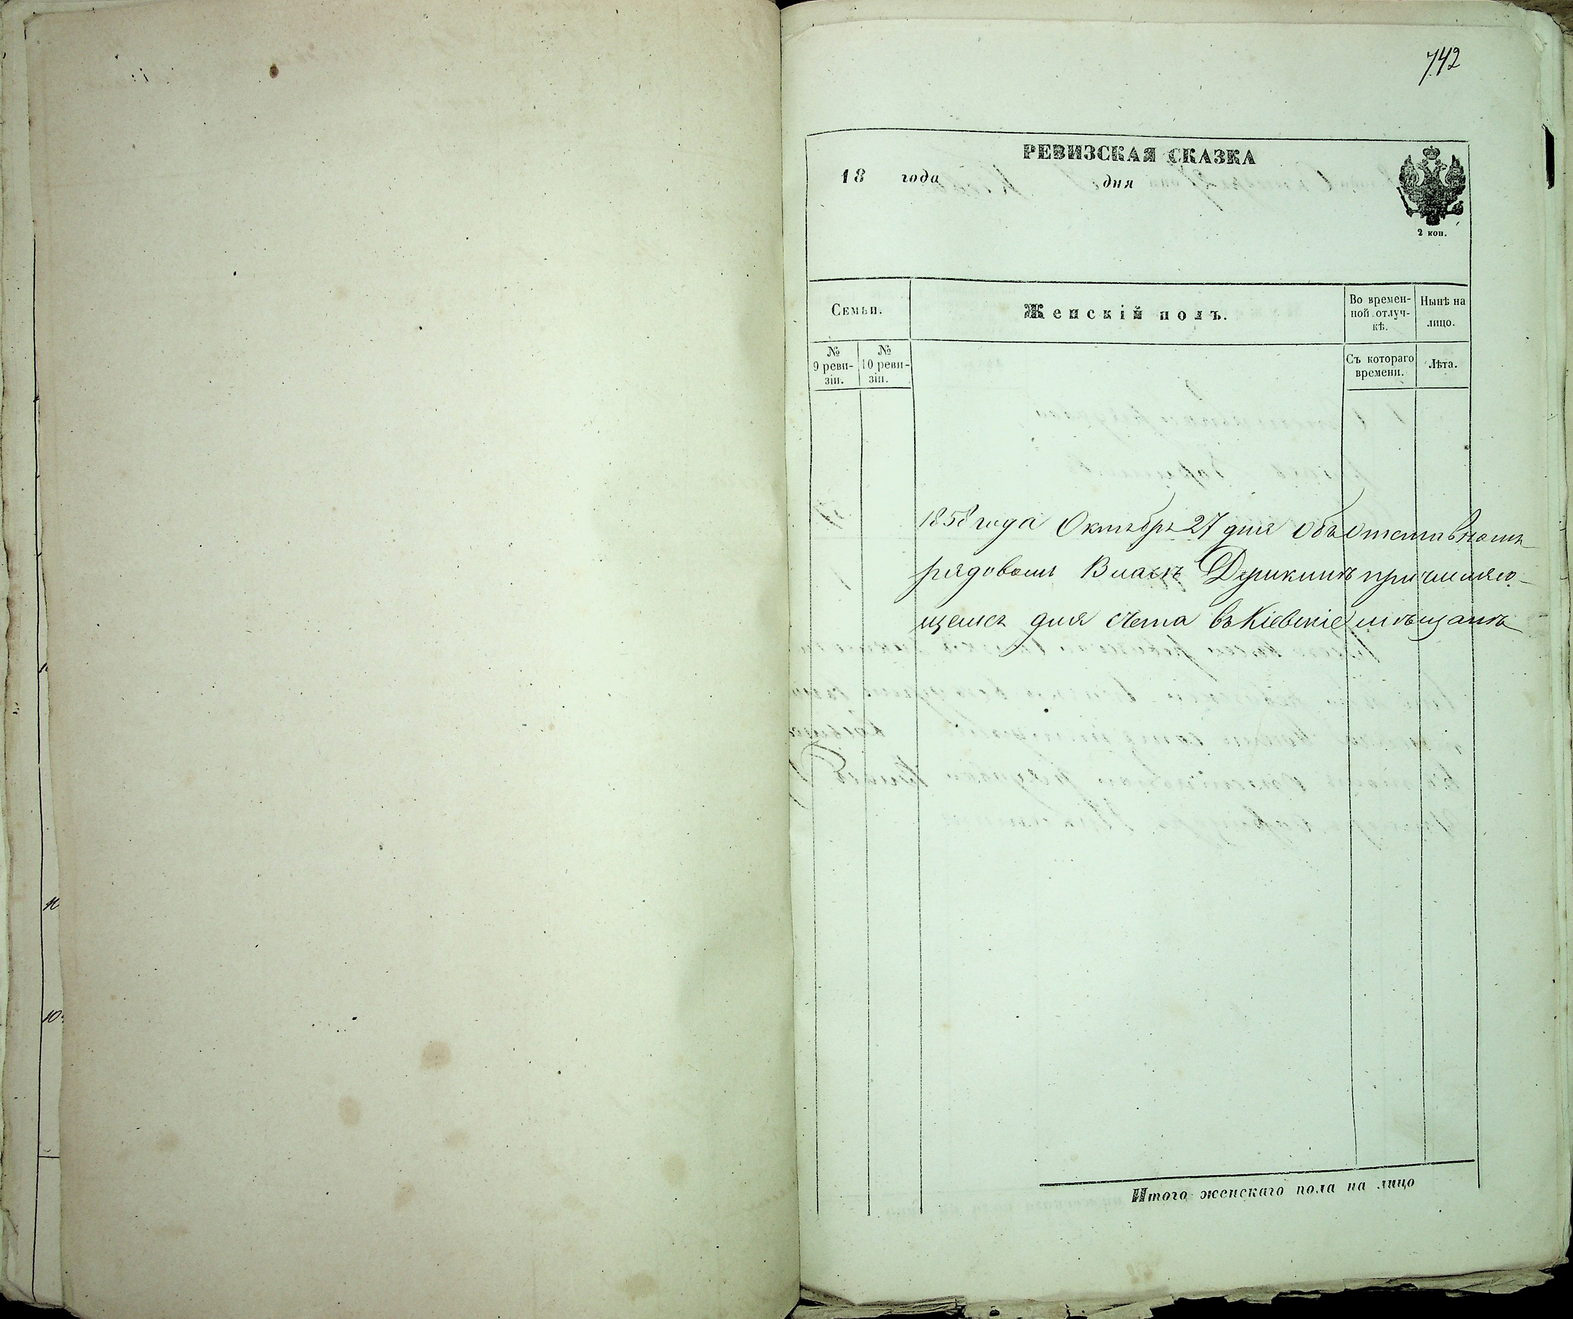 742
РЕВИЗСКАЯ СКАЗКА
18 года дня
2 коп.
Семьи. Женскій полъ. Во времен-ной отлуч-кѣ. Нынѣ на лицо.
№ 9 реви-зіи. № 10 реви-зіи. Съ котораго времени. Лѣта.
1858 года Октября 27 дня объ отставномъ
рядовомъ Власѣ причисляю-
щемся для счета въ Кіевскіе мѣщане
Итого женскаго пола на лицо
10